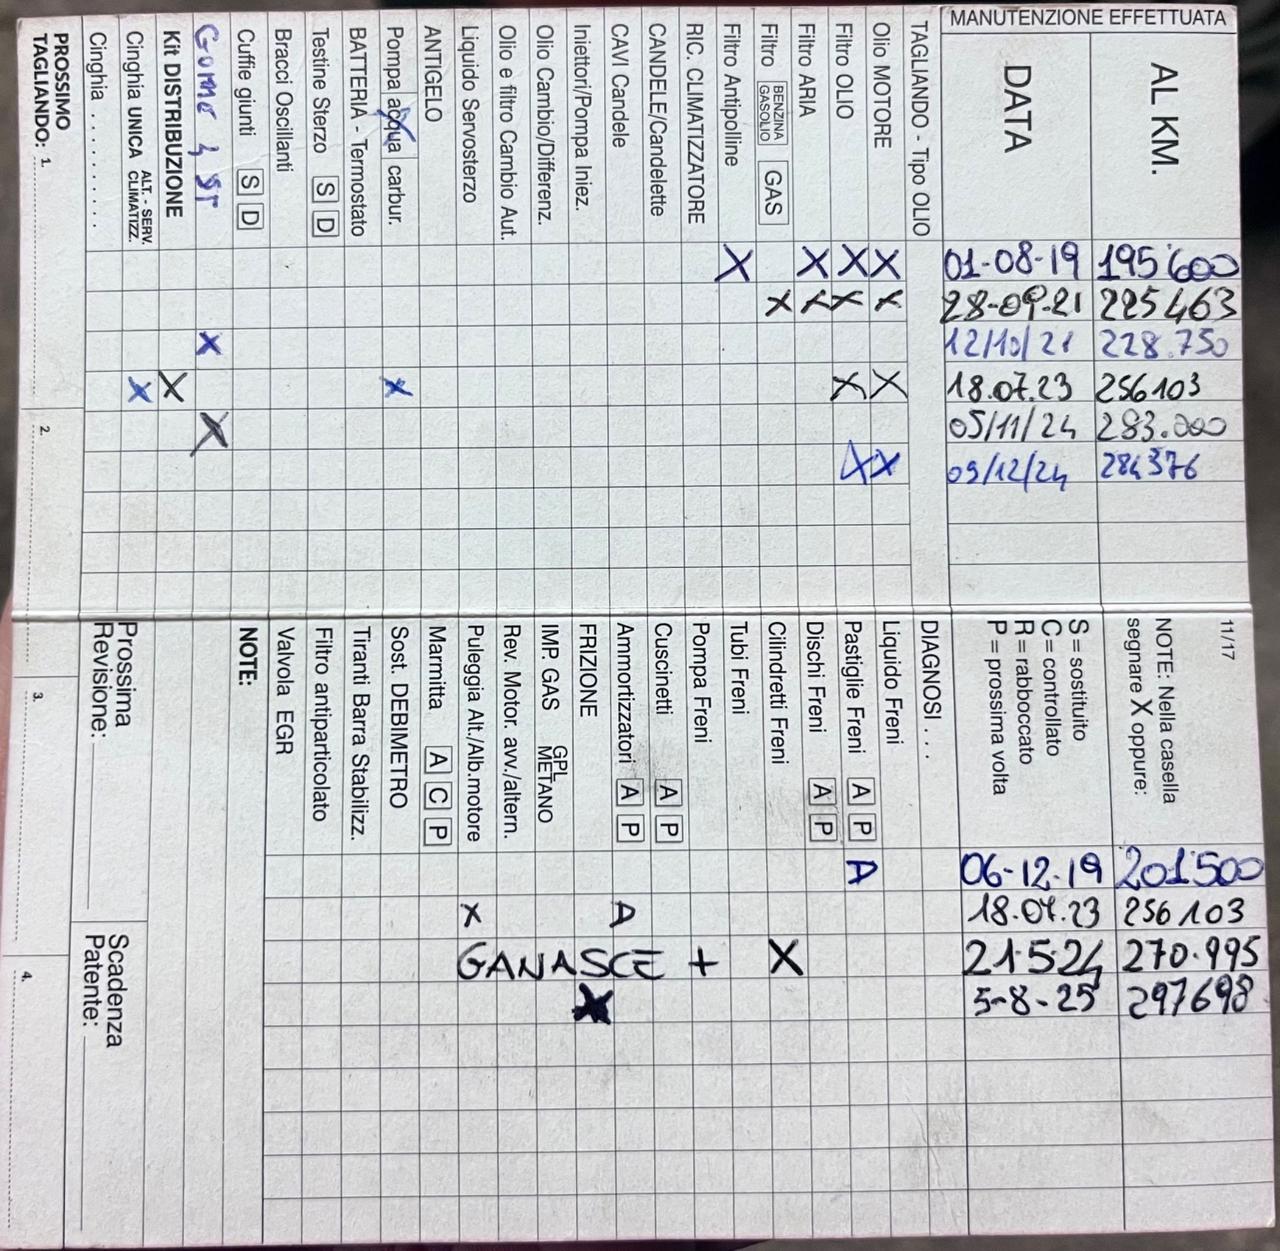 MANUTENZIONE EFFETTUATA
AL KM.
195600
225463
228.750
256103
283.000
284376
DATA
01-08-19
28-09-21
12/10/21
18.07.23
05/11/24
09/12/24
TAGLIANDO - Tipo OLIO
Olio MOTORE X X X X
Filtro OLIO X X X X
Filtro ARIA X X
Filtro BENZINA GASOLIO GAS X
Filtro Antipolline X
RIC. CLIMATIZZATORE
CANDELE/Candelette
CAVI Candele
Iniettori/Pompa Iniez.
Olio Cambio/Differenz.
Olio e filtro Cambio Aut.
Liquido Servosterzo
ANTIGELO
Pompa acqua carbur. X
BATTERIA - Termostato
Testine Sterzo S D
Bracci Oscillanti
Cuffie giunti S D
Gome 4 ST X X
Kit DISTRIBUZIONE X
Cinghia UNICA ALT. - SERV. CLIMATIZZ. X
Cinghia ..........
PROSSIMO
TAGLIANDO: 1. 2. 3. 4.
11/17
NOTE: Nella casella
segnare X oppure:
201500
256103
270.995
297698
S = sostituito
C = controllato
R = rabboccato
P = prossima volta
06-12-19
18.07.23
21.5.24
5-8-25
DIAGNOSI . . .
Liquido Freni
Pastiglie Freni A P A
Dischi Freni A P
Cilindretti Freni X
Tubi Freni
Pompa Freni
Cuscinetti A P
Ammortizzatori A P A
FRIZIONE X
IMP. GAS GPL METANO
Rev. Motor. avv./altern.
Puleggia Alt./Alb.motore X
GANASCE +
Marmitta A C P
Sost. DEBIMETRO
Tiranti Barra Stabilizz.
Filtro antiparticolato
Valvola EGR
NOTE:
Prossima
Revisione:
Scadenza
Patente: